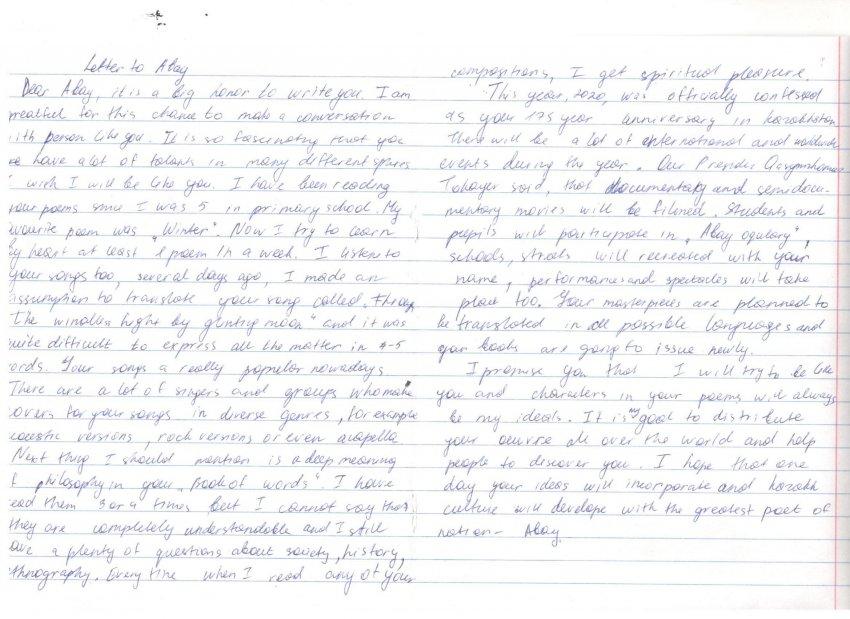 Letter to Abay
Dear Abay, it is a big honor to write you. I am
greatful for this chance to make a conversation
with person like you. It is so that you
have a lot of talents in many different
I wish I will be like you. I have been reading
your poems since I was 5 in primary school. My
favourite poem was "Winter". Now I try to learn
by heart at least 1 poem in a week. I listen to
your songs too, several days ago, I made an
assumption to translate your song called,
The windless night by moon" and it was
quite difficult to express all the matter in 4-5
words. Your songs a really popular nowadays
There are a lot of singers and groups who make
covers for your songs in diverse genres, for example
acoustic versions, rock versions or even acapella
Next thing I should mention is a deep meaning
of philosophy in your "Book of words". I have
read them 3 or 4 times but I cannot say that
they are completely understandable and I still
have a plenty of questions about society, history,
ethnography. Every time when I read any of your
compositions, I get spiritual pleasure.
This year, 2020, was officially
as your 175 year anniversary in Kazakhstan
There will be a lot of international and worldwide
events during the year. Our
said, that documentary and semidocu-
mentary movies will be filmed. Students and
pupils will participate in "Abay ",
schools, streets will recreated with your
name, performances and spectacles will take
place too. Your masterpieces are planned to
be translated in all possible languages and
your books are going to issue newly.
I promise you that I will try to be like
you and characters in your poems will always
be my ideals. It is my goal to distribute
your oeuvre all over the world and help
people to discover you. I hope that one
day your ideas will incorporate and kazakh
culture will develop with the greatest poet of
nation - Abay